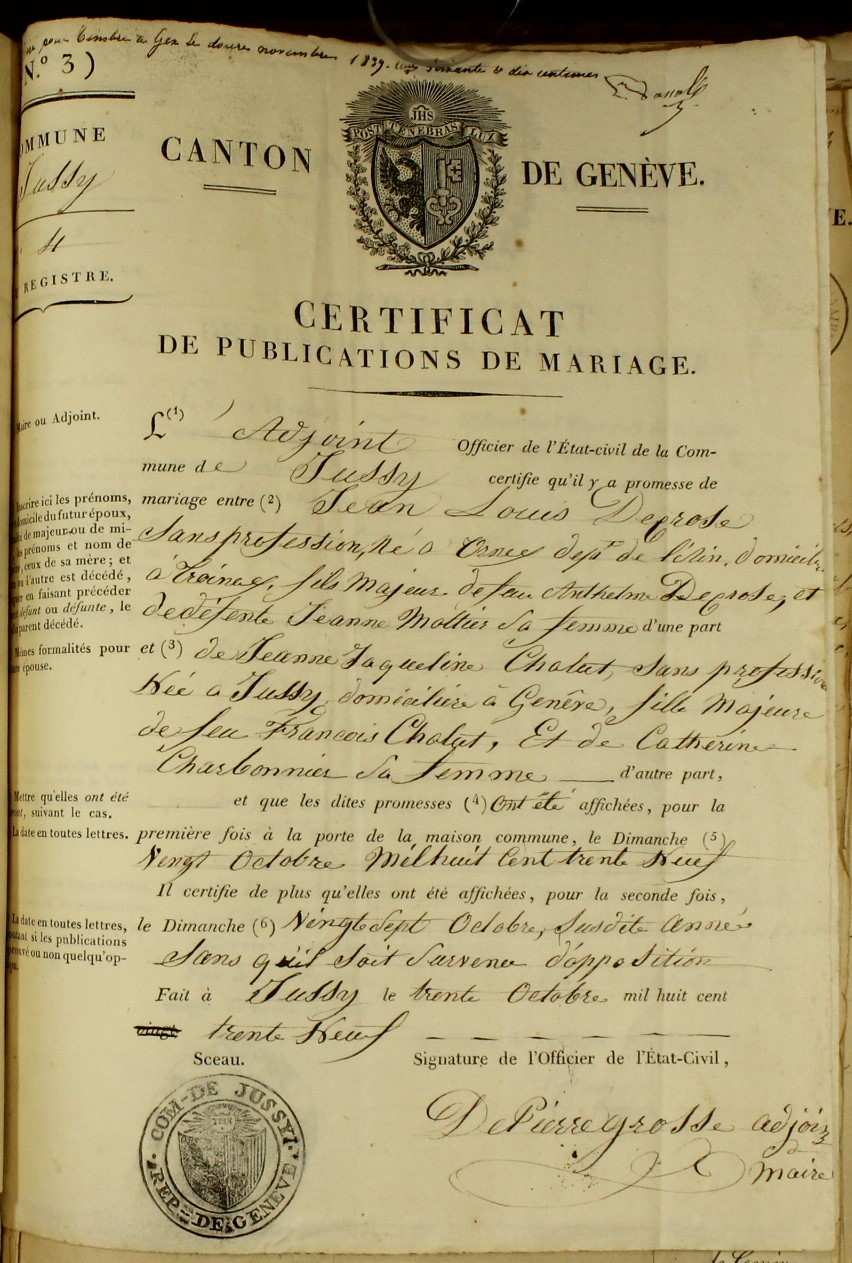 pour timbre à Gex le douze novembre 1839. et dix centimes
N.º 3)
OMMUNE
Jussy
4
REGISTRE.
JHS
POST TENEBRAS LUX
CANTON DE GENÈVE.
CERTIFICAT
DE PUBLICATIONS DE MARIAGE.
Maire ou Adjoint.
L(1) 'Adjoint Officier de l'État-civil de la Com-
mune de Jussy certifie qu'il y a promesse de
mariage entre (2) Jean Louis Decrose
Sans profession, Né à Ornex dept de l'Ain, domicilié
à Troinex, fils Majeur de feu Anthelme Decrose, et
de défente Jeanne Mottier Sa femme d'une part
et (3) de Jeanne Jaqueline Chalut, Sans profession
Née à Jussy, domiciliére à Genêve, fille Majeure
de feu François Chalut, Et de Cathérine
Charbonnier Sa femme d'autre part,
et que les dites promesses (4) Ont été affichées, pour la
première fois à la porte de la maison commune, le Dimanche (5)
Vingt Octobre Mil huit Cent trente Neuf
Il certifie de plus qu'elles ont été affichées, pour la seconde fois,
le Dimanche (6) Vingt Sept Octobre, Susdite année
Sans qu'il Soit Survenu d'opposition
Fait à Jussy le trente Octobre mil huit cent
vingt trente Neuf
Sceau. Signature de l'Officier de l'État-Civil,
DePierregrosse adjoint
Maire
inscrire ici les prénoms,
domicile du futur époux,
de majeur ou de mi-
prénoms et nom de
ceux de sa mère; et
l'autre est décédé,
en faisant précéder
défunt ou défunte, le
parent décédé.
Mêmes formalités pour
épouse.
Mettre qu'elles ont été
suivant le cas.
La date en toutes lettres.
La date en toutes lettres,
si les publications
ou non quelqu'op-
COM. DE JUSSY
REP. DE GENÈVE